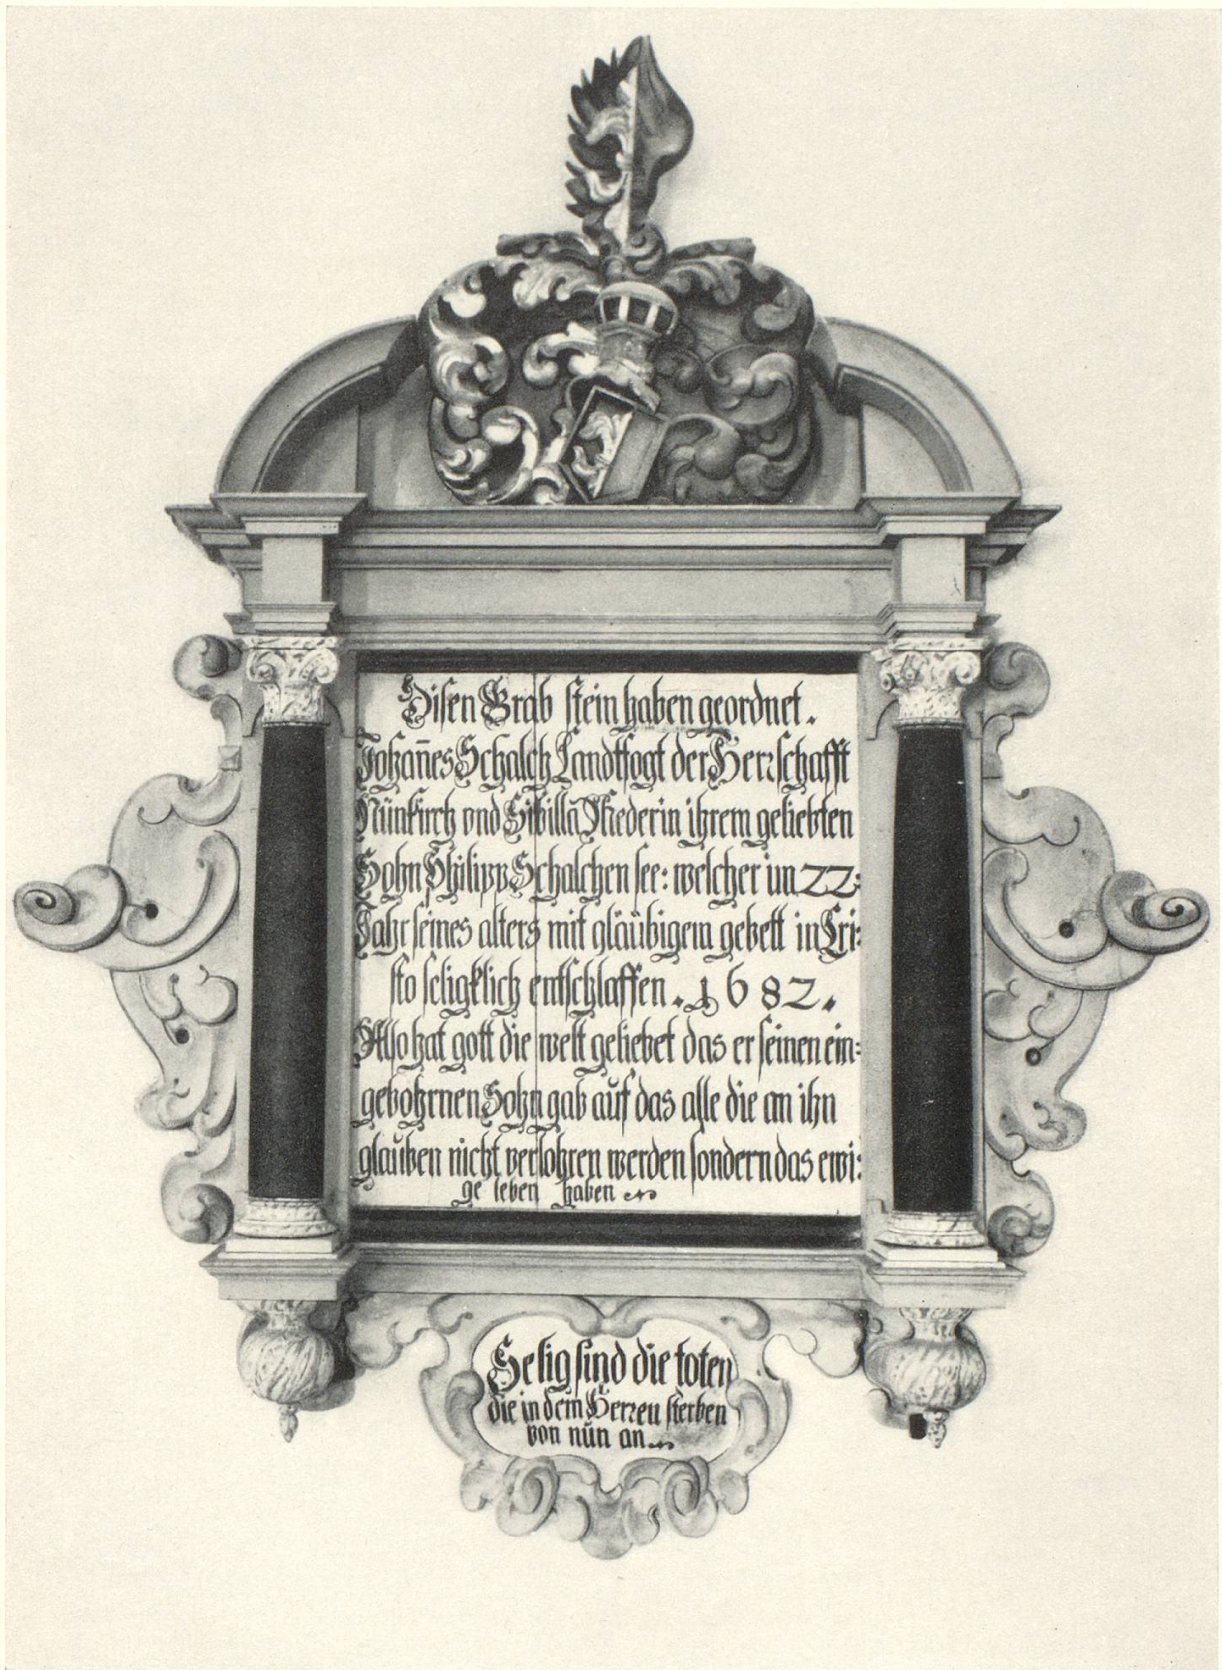 Disen Grab stein haben geordnet.
Johan̄es Schalch Landtfogt der Herrschafft
Nünkirch vnd Sibilla Miederin ihrem geliebten
Sohn Philipp Schalchen see: welcher im 22:
Jahr seines alters mit gläubigem gebett in Cri:
sto seligklich entschlaffen. 1682.
Also hat gott die welt geliebet das er seinen ein:
gebohrnen Sohn gab auf das alle die an ihn
glauben nicht verlohren werden sondern das ewi:
ge leben haben
Selig sind die toten
die in dem Herren sterben
von nün an